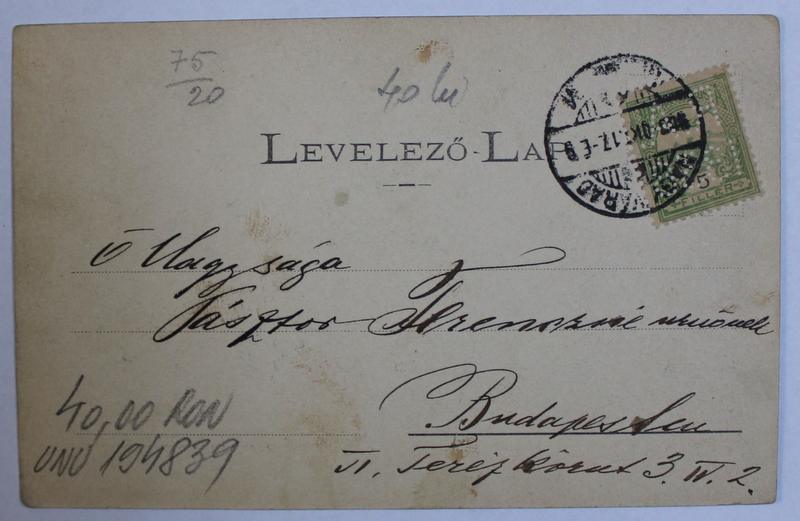 75
20
40 lei
LEVELEZŐ-LAP
5
FILLÉR
Ő Nagysága
Pásztor Ferenczné urnőnek
Budapesten
VI. Teréz Körut 3. IV. 2.
40,00 RON
UNU 194839